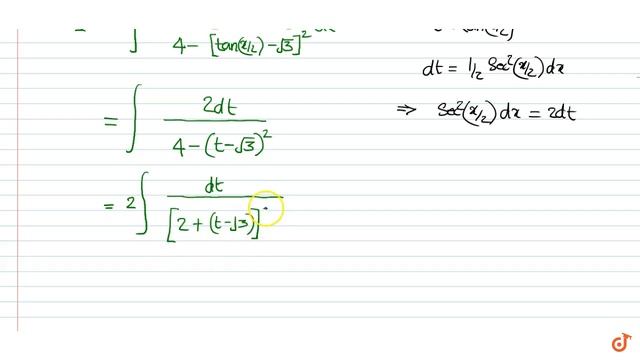 ∫ / 4 - [tan(x/2) - √3]²
dt = 1/2 Sec²(x/2) dx
= ∫ 2dt / 4 - (t - √3)²
⇒ Sec²(x/2) dx = 2dt
= 2 ∫ dt / [2 + (t - √3)]